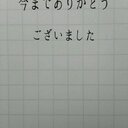 今までありがとう
ございました